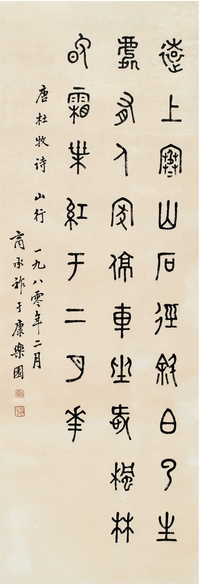 遠上寒山石徑斜白云生
處有人家停車坐愛楓林
晚霜葉紅于二月花
唐杜牧诗 山行 一九八零年二月
商承祚于康樂園